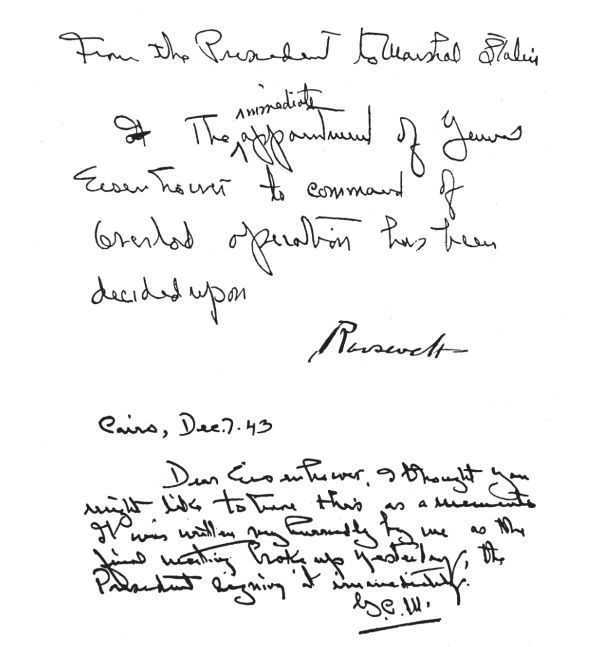 From the President to Marshal Stalin
immediate
The appointment of General
Eisenhower to command of
Overlord operation has been
decided upon
Roosevelt
Cairo, Dec. 7. 43
Dear Eisenhower, I thought you
might like to have this as a memento.
It was written very hurriedly by me as the
final meeting broke up yesterday, the
President signing it immediately.
G.C.M.